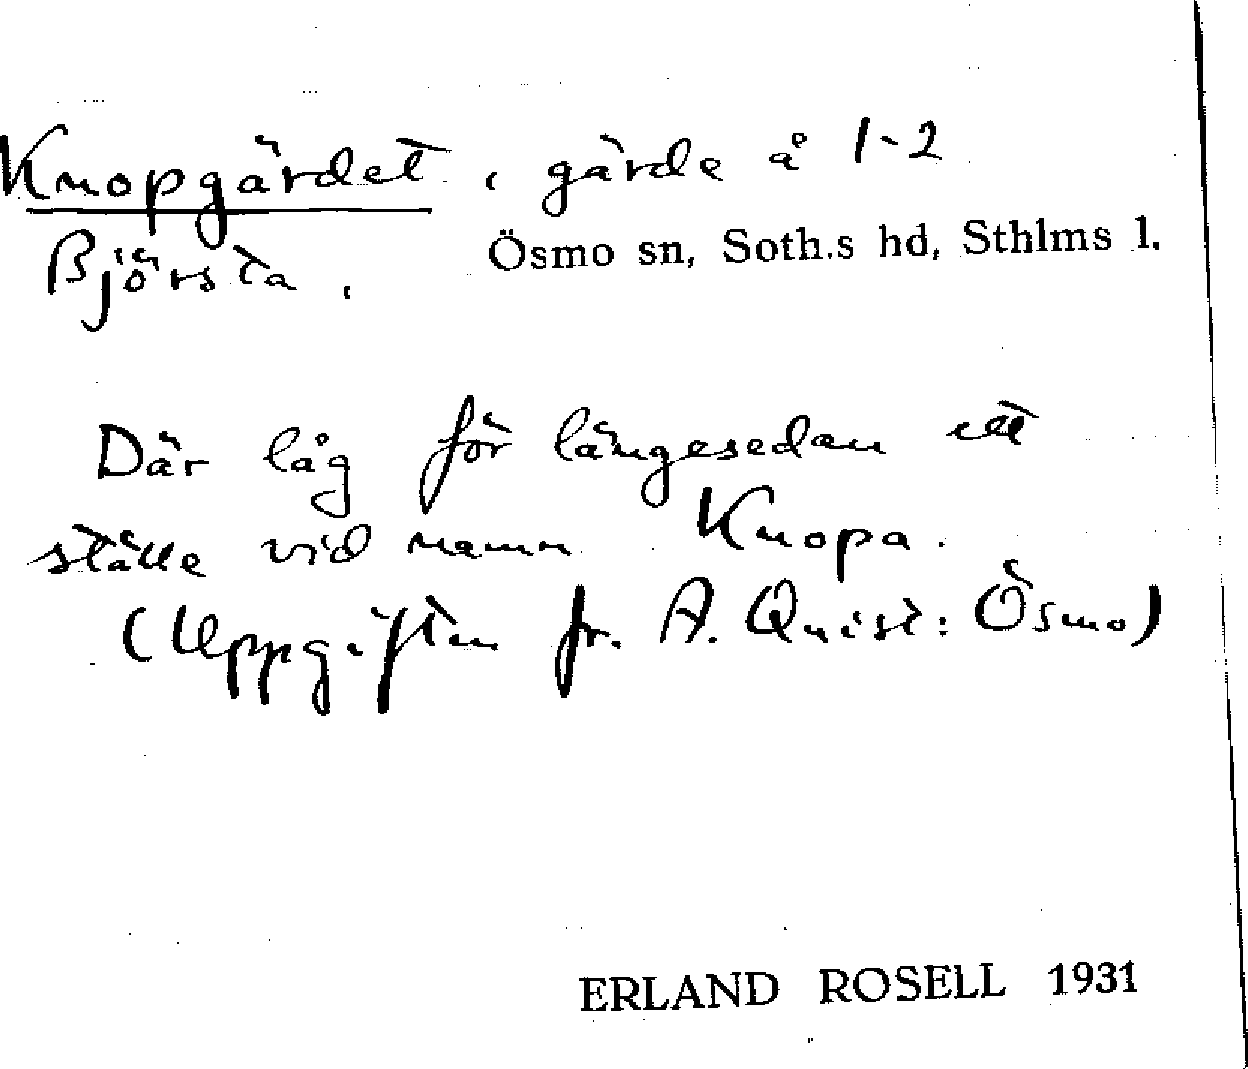 Knopgärdet, gärde å 1-2
Björsta.
Ösmo sn, Soth.s hd, Sthlms l.
Där låg för längesedan ett
ställe vid namn Knopa.
(Uppgiften fr. A. Quist: Ösmo)
ERLAND ROSELL 1931